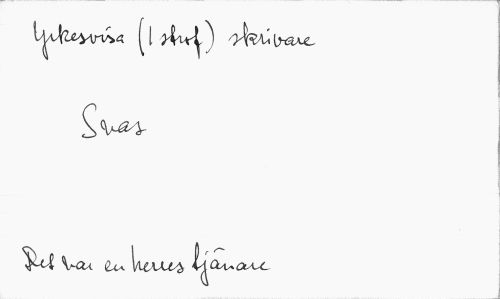 Yrkesvisa (1 strof) skrivare
Svas
Det var en herres tjänare